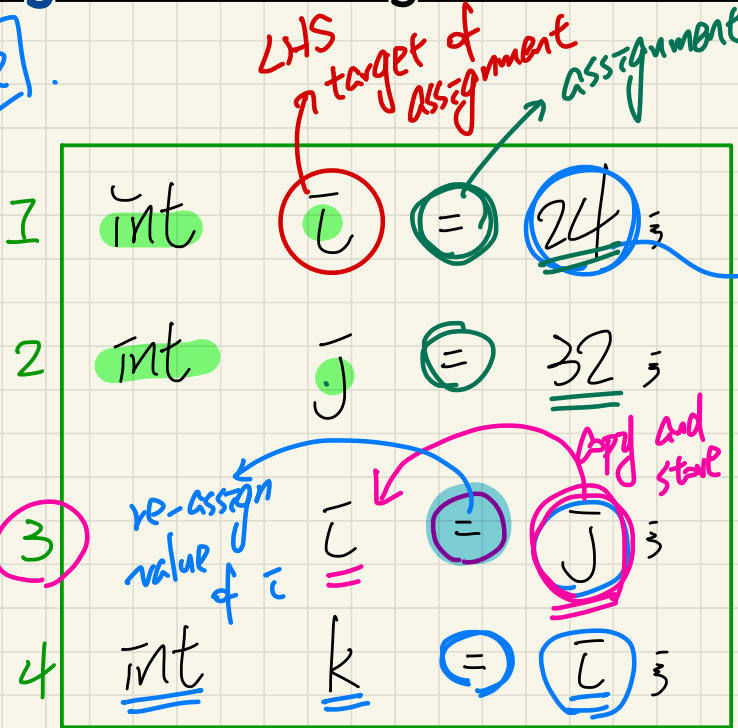 LHS
target of
assignment
assignment
1 int i = 24;
2 int j = 32;
copy and
store
re-assign
value
of i
3 i = j;
4 int k = i;